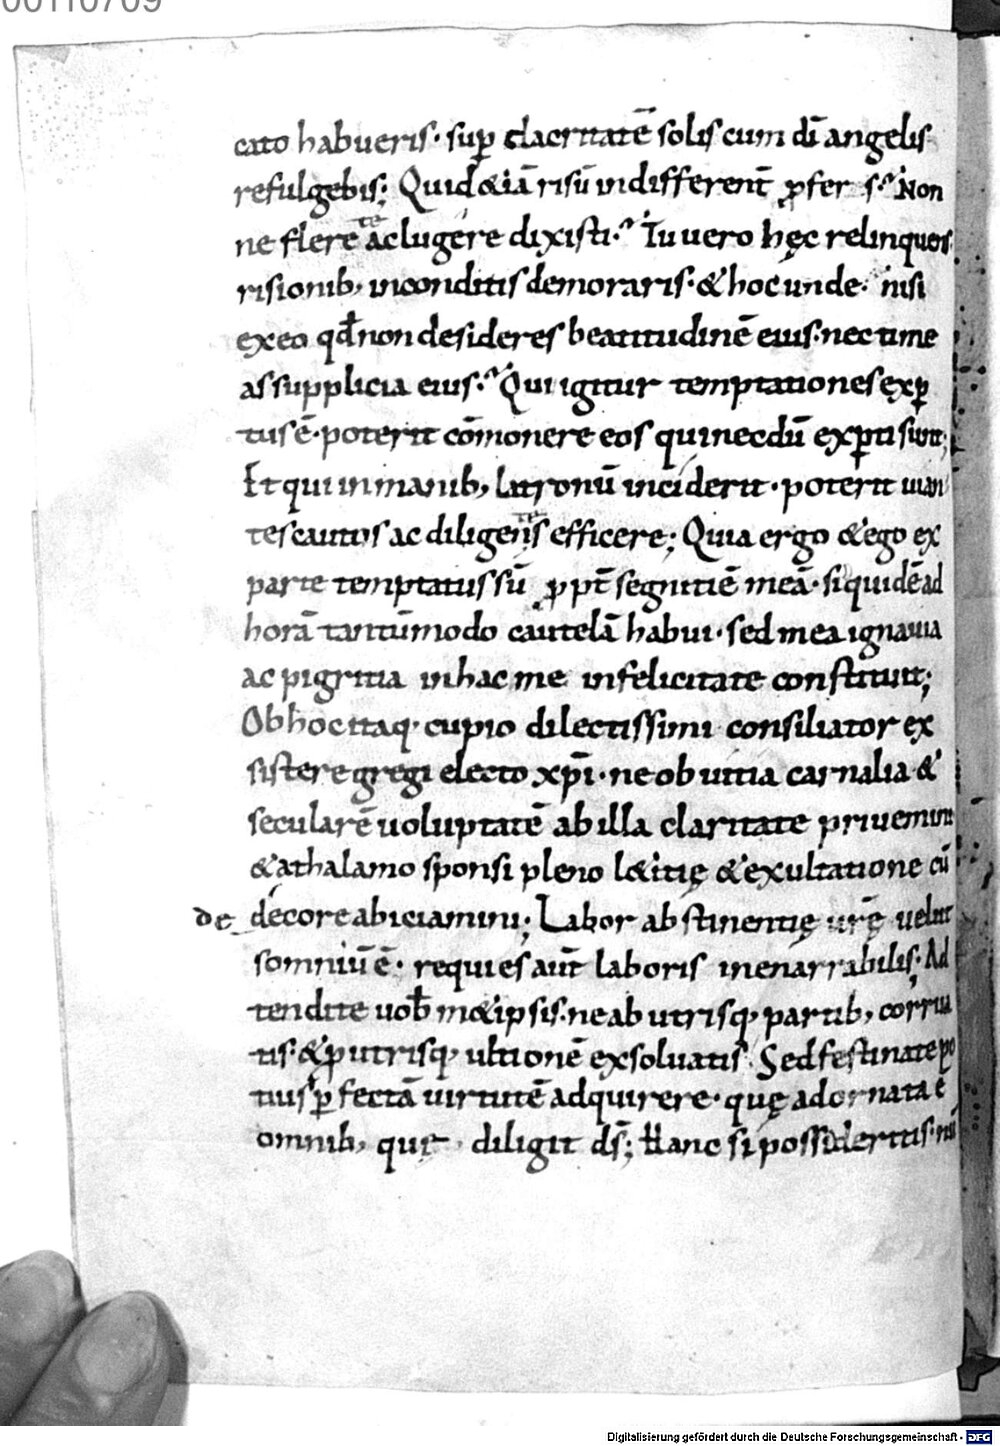 00110709
cato habueris· sup̱ clacritatē solis cum dī angelis
refulgebis; Quid &iā risū indifferent̄ ꝓfers? Non
ne flere ac lugere te dixisti? Tu uero hęc relinquens
risionib; inconditis demoraris· & hoc unde· nisi
ex eo qđ non desideres beatitudinē eius· nec time
as supplicia eius? Qui igitur temptationes exꝑ
tus ē· poterit cōmonere eos qui necdū exꝑti sunt;
Et qui in manib; latronū inciderit· poterit uian
tes cautos ac diligentes efficere; Quia ergo & ego ex
parte temptatus sū ꝓpt̄ segnitiē meā· siquidē ad
horā tantūmodo cautelā habui· sed mea ignauia
ac pigritia in hac me infelicitate constituit;
Ob hoc itaq; cupio dilectissimi consiliator ex
sistere gregi electo xp̄i· ne ob uitia carnalia &
secularē uoluptatē ab illa claritate priuemini
& a thalamo sponsi pleno l&itię & exultatione cū
de decore abiciamini; Labor abstinentię urę̄ uelut
somniū ē· requies aut̄ laboris inenarrabilis; Ad
tendite uob̄ m&ipsis· ne ab utrisq; partib; corrua
tis· & ꝑ utrisq; ultionē exsoluatis. Sed festinate po
tius ꝑfectā uirtutē adquirere· quę adornata ē
omnib; quę diligit d̄s; Hanc si possideritis· nū
Digitalisierung gefördert durch die Deutsche Forschungsgemeinschaft - DFG